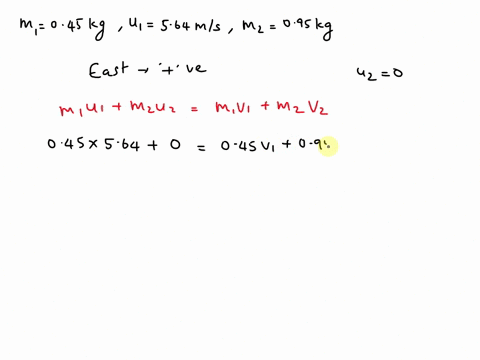 m₁ = 0.45 kg , u₁ = 5.64 m/s , m₂ = 0.95 kg
East → '+' ve
u₂ = 0
m₁u₁ + m₂u₂ = m₁v₁ + m₂v₂
0.45 × 5.64 + 0 = 0.45 v₁ + 0.9